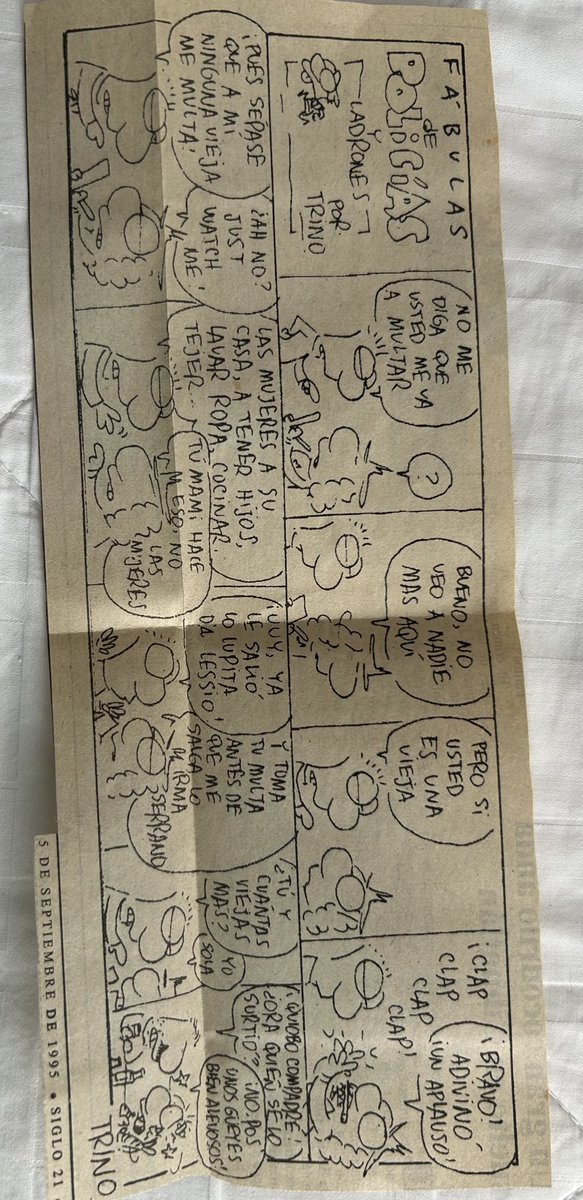 FÁBULAS
DE
POLICÍAS
Y
LADRONES
POR
TRINO
NO ME
DIGA QUE
USTED ME VA
A MULTAR
?
BUENO, NO
VEO A NADIE
MAS AQUÍ
PERO SI
USTED
ES UNA
VIEJA
¡CLAP
CLAP
CLAP
CLAP!
¡BRAVO!
ADIVINÓ
¡UN APLAUSO!
¡PUES SÉPASE
QUE A MI
NINGUNA VIEJA
ME MULTA!
¿AH NO?
JUST
WATCH
ME!
LAS MUJERES A SU
CASA, A TENER HIJOS,
LAVAR ROPA, COCINAR.
TEJER...
TU MAMI HACE
ESO, NO
LAS
MUJERES
¡UUY, YA
LE SALIÓ
LO LUPITA
DA LESSIO!
Y TOMA
TU MULTA
ANTES DE
QUE ME
SALGA LO
DE IRMA
SERRANO
¿TÚ Y
CUÁNTAS
VIEJAS
MAS?
YO
SOLA
¡QUIUBO COMPADRE!
¿ORA QUIEN SE LO
SURTIÓ?
¡NO, POS
UNOS GÜEYES
BIEN ALEVOSOS!
TRINO
5 DE SEPTIEMBRE DE 1995 • SIGLO 21